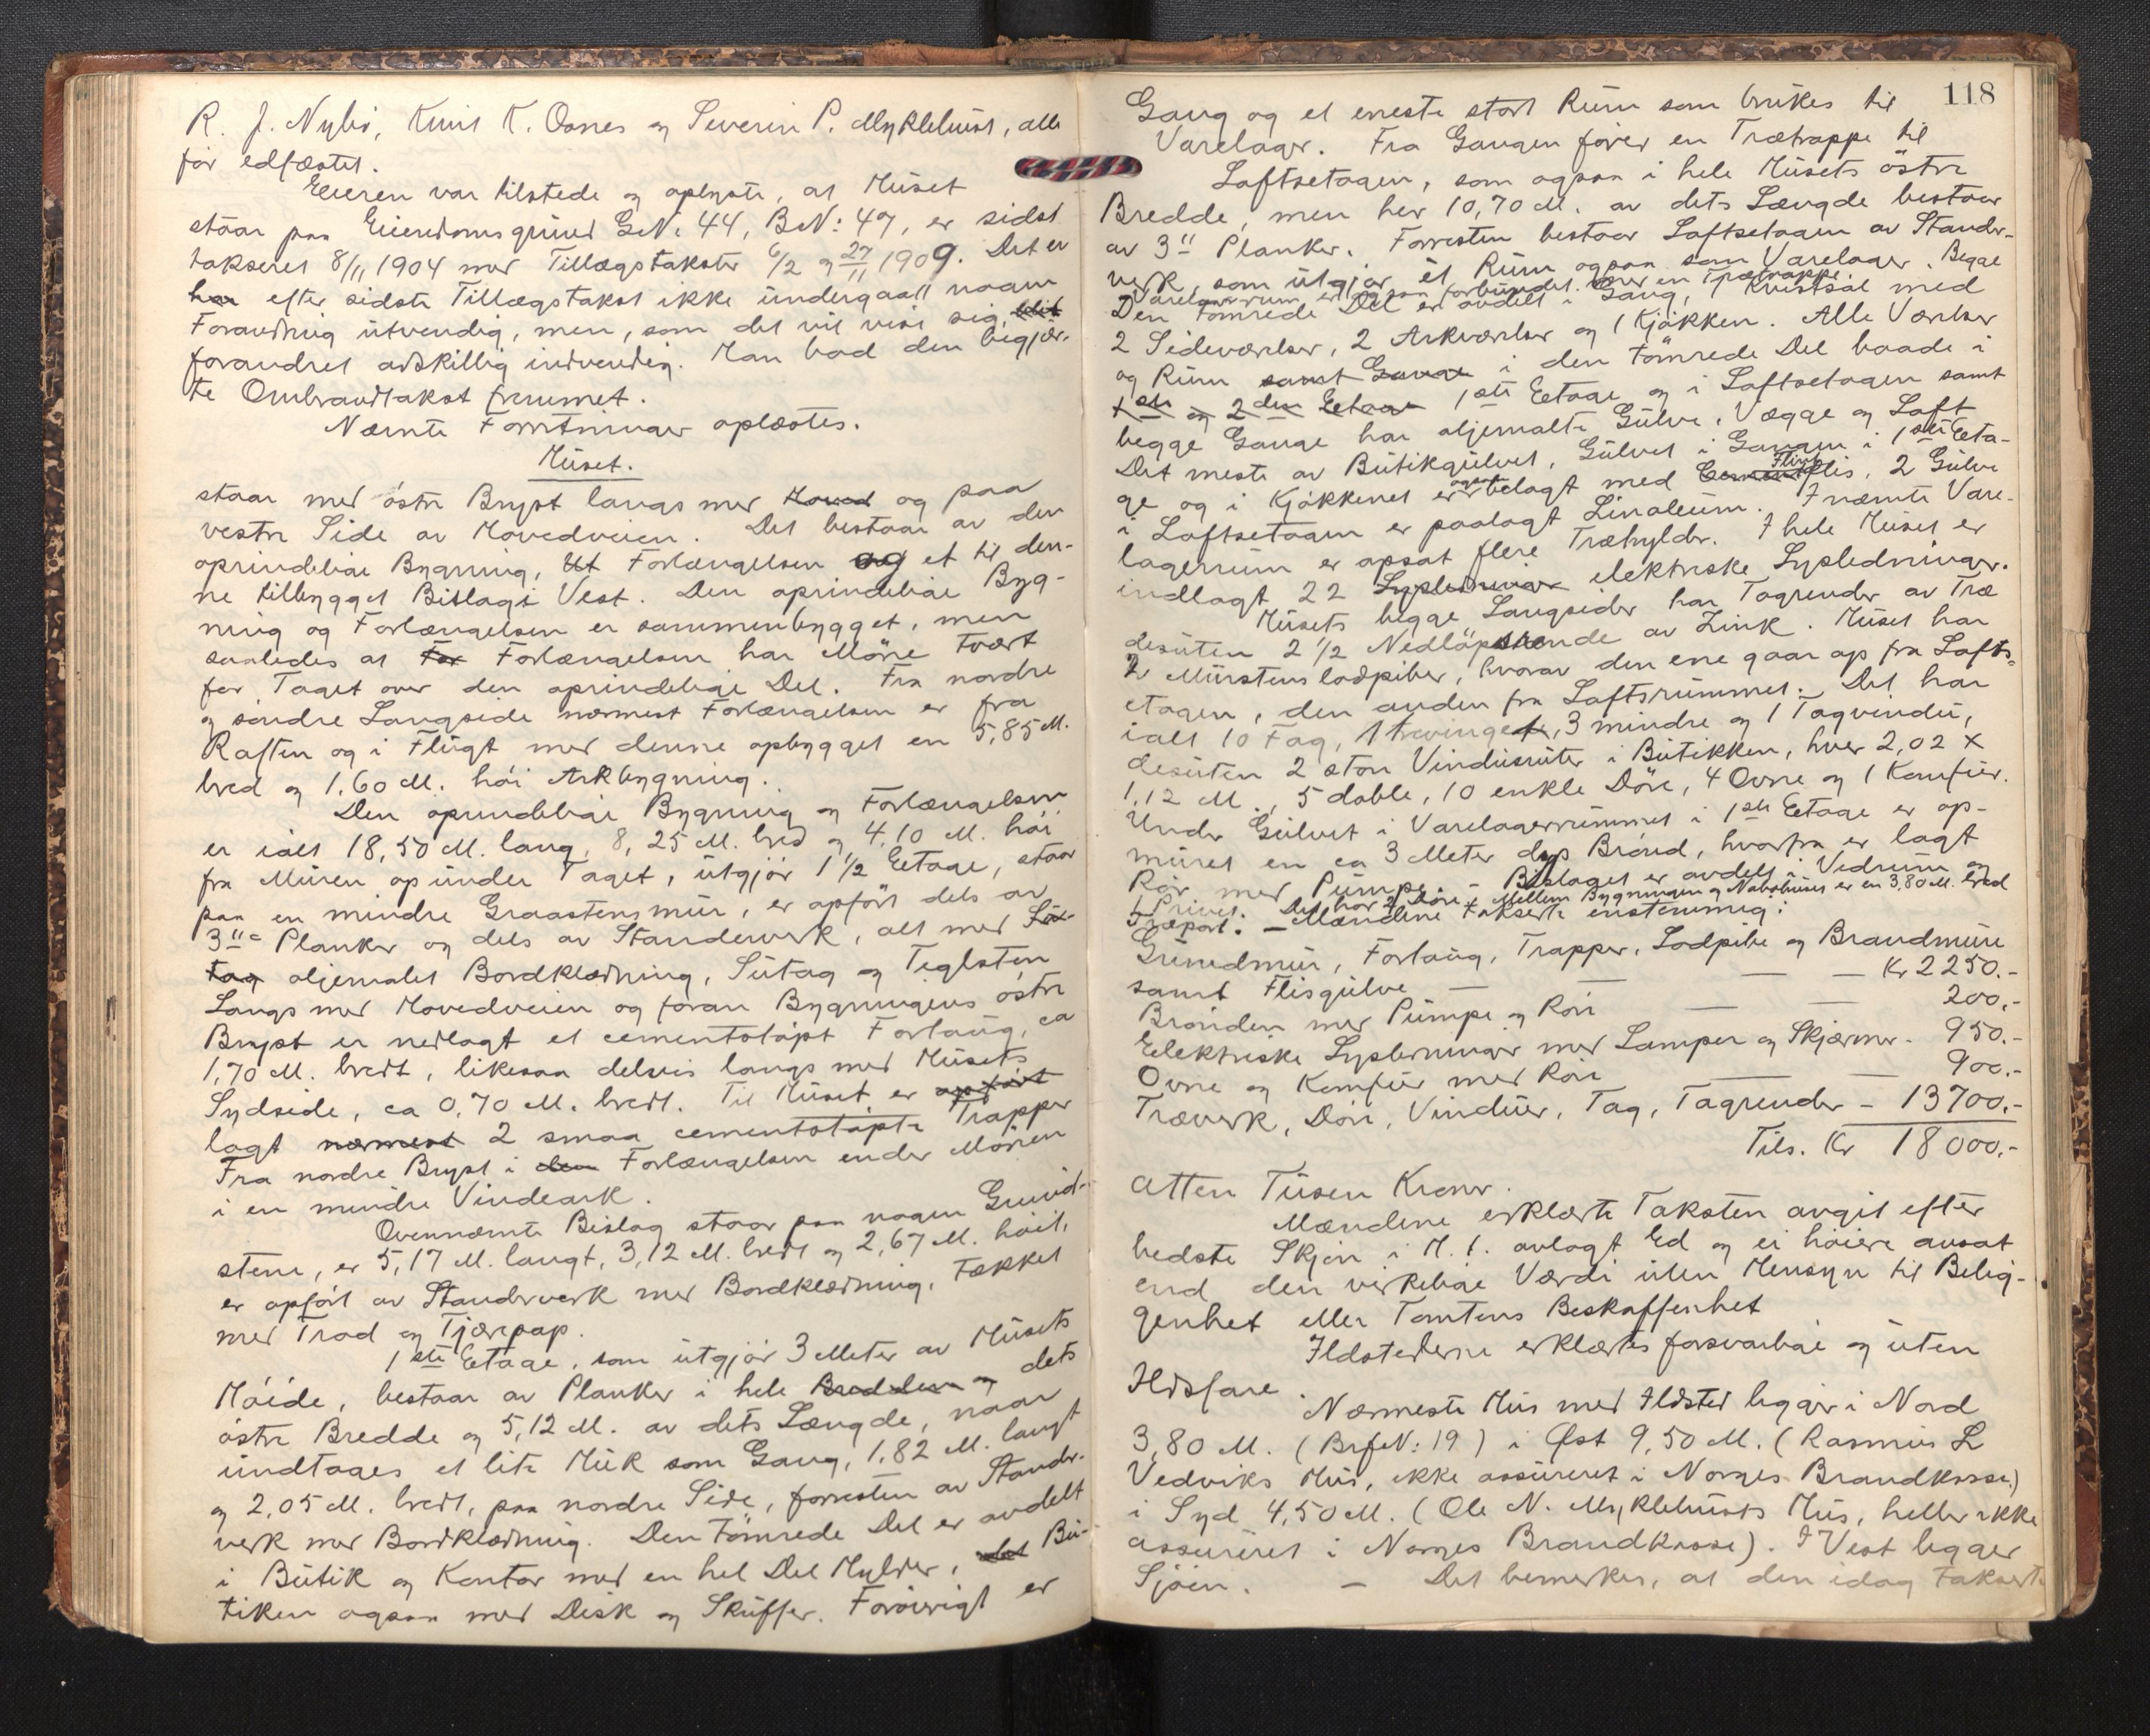 R. J. Nybø, Knut K. Osnes og Severin P. Myklebust, alle
før edfæstet.
Eieren var tilstede og oplyste, at Huset
staar paa Eiendomsgrund G.N: 44, B.N: 47, er sidst
takseret 8/11 1904 med Tillægstakster 6/2 og 27/11 1909. Det er
har efter sidste Tillægstakst ikke undergaatt noen
Forandring utvendig, men, som det vil vise sig, blit
forandret adskillig indvendig. Man bad den begjær-
te Ombrandtakst fremmet.
Nævnte Forretninger oplæstes.
Huset.
staar med østre Bryst langs med Hoved og paa
vestre Side av Hovedveien. Det bestaar av den
oprindelige Bygning, et Forlængelsen og et til den-
ne tilbygget Bislag i Vest. Den oprindelige Byg-
ning og Forlængelsen er sammenbygget, men
saaledes at For Forlængelsen har Møne tvært
for Taget over den oprindelige Del. Fra nordre
og søndre Langside nærmest Forlængelsen er fra
Raften og i Flugt med denne opbygget en 5,85 M.
bred og 1,60 M. høi Arkbygning.
Den oprindelige Bygning og Forlængelsen
er ialt 18,50 M. lang, 8,25 M. bred og 4,10 M. høi
fra Muren op under Taget, utgjør 1 1/2 Etage, staar
paa en mindre Graastensmur, er opført dels av
3" Planker og dels av Standerverk, alt med Su-
tag oljemalet Bordklædning, Sutag og Teglsten
Langs med Hovedveien og foran Bygningens østre
Bryst er nedlagt et cementstøpt Fortaug, ca
1,70 M. bredt, likesaa delvis langs med Husets
Sydside, ca 0,70 M. bredt. Til Huset er opført
lagt nærmest 2 smaa cementstøpte Trapper
Fra nordre Bryst i den Forlængelsen ender Mønen
i en mindre Vindeark.
Ovennævnte Bislag staar paa nogen Grund-
stene, er 5,17 M. langt, 3,12 M. bredt og 2,67 M. høit,
er opført av Standerverk med Bordklædning. Tækket
med Trad og Tjærepap.
1ste Etage, som utgjør 3 Meter av Husets
Høide, bestaar av Planker i hele Bredden og dets
østre Bredde og 5,12 M. av dets Længde, naar
undtages et lite Huk som Gang, 1,82 M. langt
og 2,05 M. bredt, paa nordre Side, forresten av Stander-
verk med Bordklædning. Den tømrede Del er avdelt
i Butik og Kontor med en hel Del Hylder, det Bu-
tiken ogsaa med Disk og Skuffer. Forøvrigt er
118
Gang og et eneste stort Rum som brukes til
Varelager. Fra Gangen fører en Trætrappe til
Loftsetagen, som ogsaa i hele Husets østre
Bredde, men her 10,70 M. av dets Længde bestaar
av 3" Planker. Forresten bestaar Loftsetagen av Stander-
verk, som utgjør et Rum ogsaa som Varelager. Begge
Varelagerrum er ogsaa forbundet med en Trætrappe.
Den tømrede Del er avdelt i Gang, 1 Kvistsal med
2 Sideværelser, 2 Arkværelser og 1 Kjøkken. Alle Værelser
og Rum samt Gange i den tømrede Del baade i
1ste og 2den Etage 1ste Etage og i Loftsetagen samt
begge Gange har oljemalte Gulve, Vægge og Loft
Det meste av Butikgulvet, Gulvet i Gangen i 1ste Eta-
ge og i Kjøkkenet er ogsaa belagt med Cement Flint flis, 2 Gulve
i Loftsetagen er paalagt Linoleum. I nævnte Vare-
lagerrum er opsat flere Træhylder. I hele Huset er
indlagt 22 Lysledninger elektriske Lysledninger.
Husets begge Langsider har Tagrender av Træ
desuten 2 1/2 Nedløpsrende av Zink. Huset har
2 Murstenslodpiber, hvorav den ene gaar op fra Lofts-
etagen, den anden fra Loftsrummet. Det har
ialt 10 Fag, 1 trevinget, 3 mindre og 1 Tagvindu,
desuten 2 store Vindusruter i Butikken, hver 2,02 x
1,12 M., 5 doble, 10 enkle Døre, 4 Ovne og 1 Komfur.
Under Gulvet i Varelagerrummet i 1ste Etage er op-
muret en ca 3 Meter dyp Brønd, hvorfra er lagt
Rør med Pumpe. – Bislaget er avdelt i Vedrum og
1 Privet. Det har 2 Døre. – Mellem Bygningen og Nabohuset er en 3,80 M. bred
Træport. – Mændene takserte enstemmig:
Grundmur, Fortaug, Trapper, Lodpibe og Brandmure
samt Flisgulve — — — Kr 2250.-
Brønden med Pumpe og Rør — — 200,-
Elektriske Lysledninger med Lamper og Skjærmer - 950.-
Ovne og Komfur med Rør — — 900.-
Træverk, Døre, Vinduer, Tag, Tagrender - 13700,-
Tils. Kr 18000.-
Atten Tusen Kroner.
Mændene erklærte Taksten avgit efter
bedste Skjøn i H. t. avlagt Ed og ei høiere ansat
end den virkelige Værdi uten Hensyn til Belig-
genhet eller Tomtens Beskaffenhet
Ildstederne erklærtes forsvarlige og uten
Ildsfare.
Nærmeste Hus med Ildsted ligger i Nord
3,80 M. (Brf.N: 19) i Øst 9,50 M. (Rasmus L
Vedviks Hus, ikke assureret i Norges Brandkasse)
i Syd 4,50 M. (Ole N. Myklebusts Hus, heller ikke
assureret i Norges Brandkasse). I Vest ligger
Sjøen. – Det bemerkes, at den idag takserte